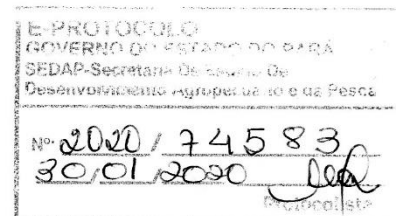 E-PROTOCOLO
GOVERNO DO ESTADO DO PARÁ
SEDAP-Secretaria De Estado De
Desenvolvimento Agropecuário e da Pesca
Nº 2020 / 74583
30/01/2020
Protocolista